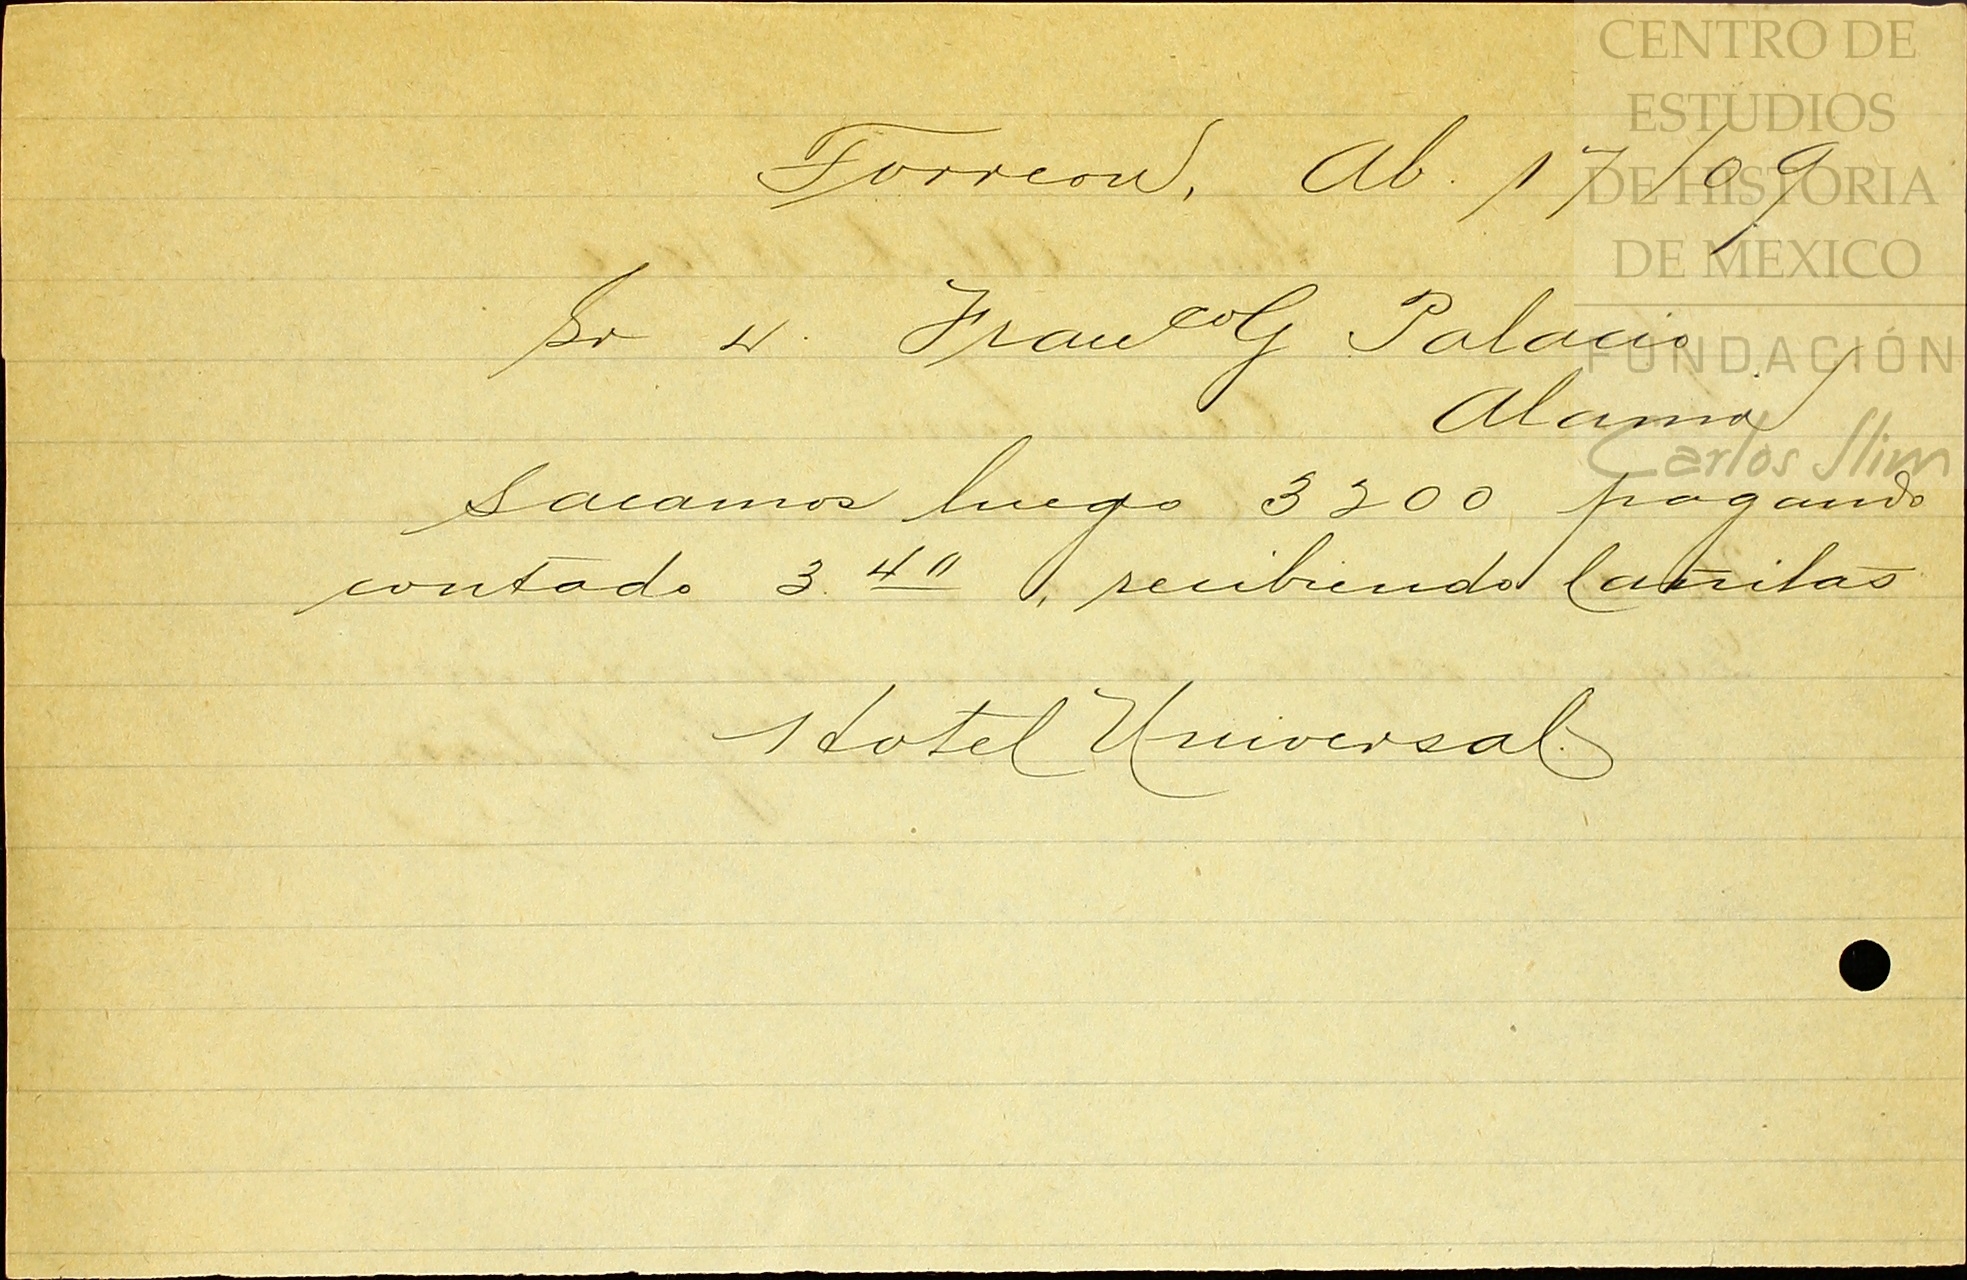 Torreon, Ab. 17/09
Sr D. Franco G Palacio
Alamo
Sacamos luego 3200 pagando
contado 3.40, recibiendo Cañitas
Hotel Universal.
CENTRO DE
ESTUDIOS
DE HISTORIA
DE MEXICO
FUNDACIÓN
Carlos Slim